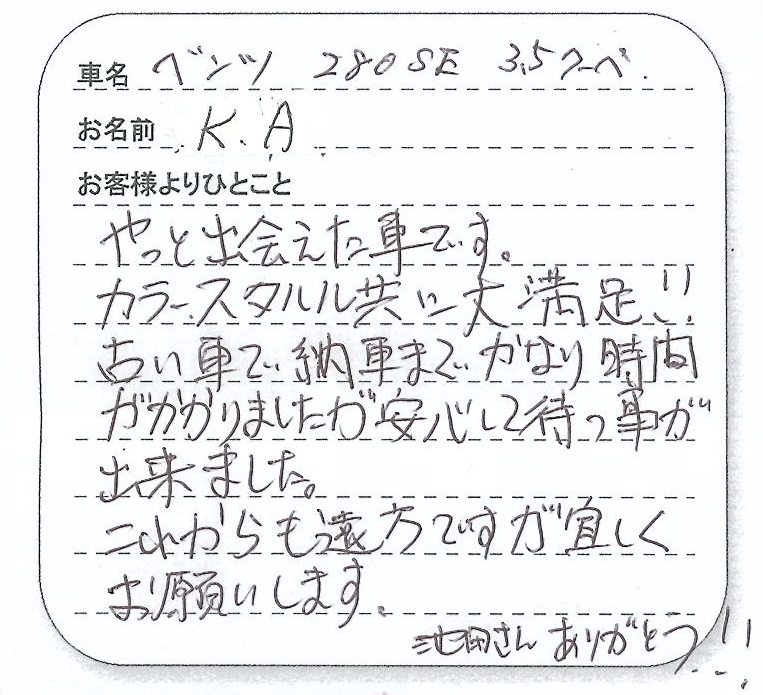 車名 ベンツ 280SE 3.5クーペ.
お名前 K.A
お客様よりひとこと
やっと出会えた車です。
カラー、スタルル共に大満足!!
古い車で納車までかなり時間
がかかりましたが安心して待つ事が
出来ました。
これからも遠方ですが宜しく
お願いします。
池田さんありがとう!!